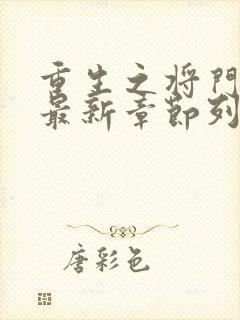 重生之将门
最新章节列
唐彩色